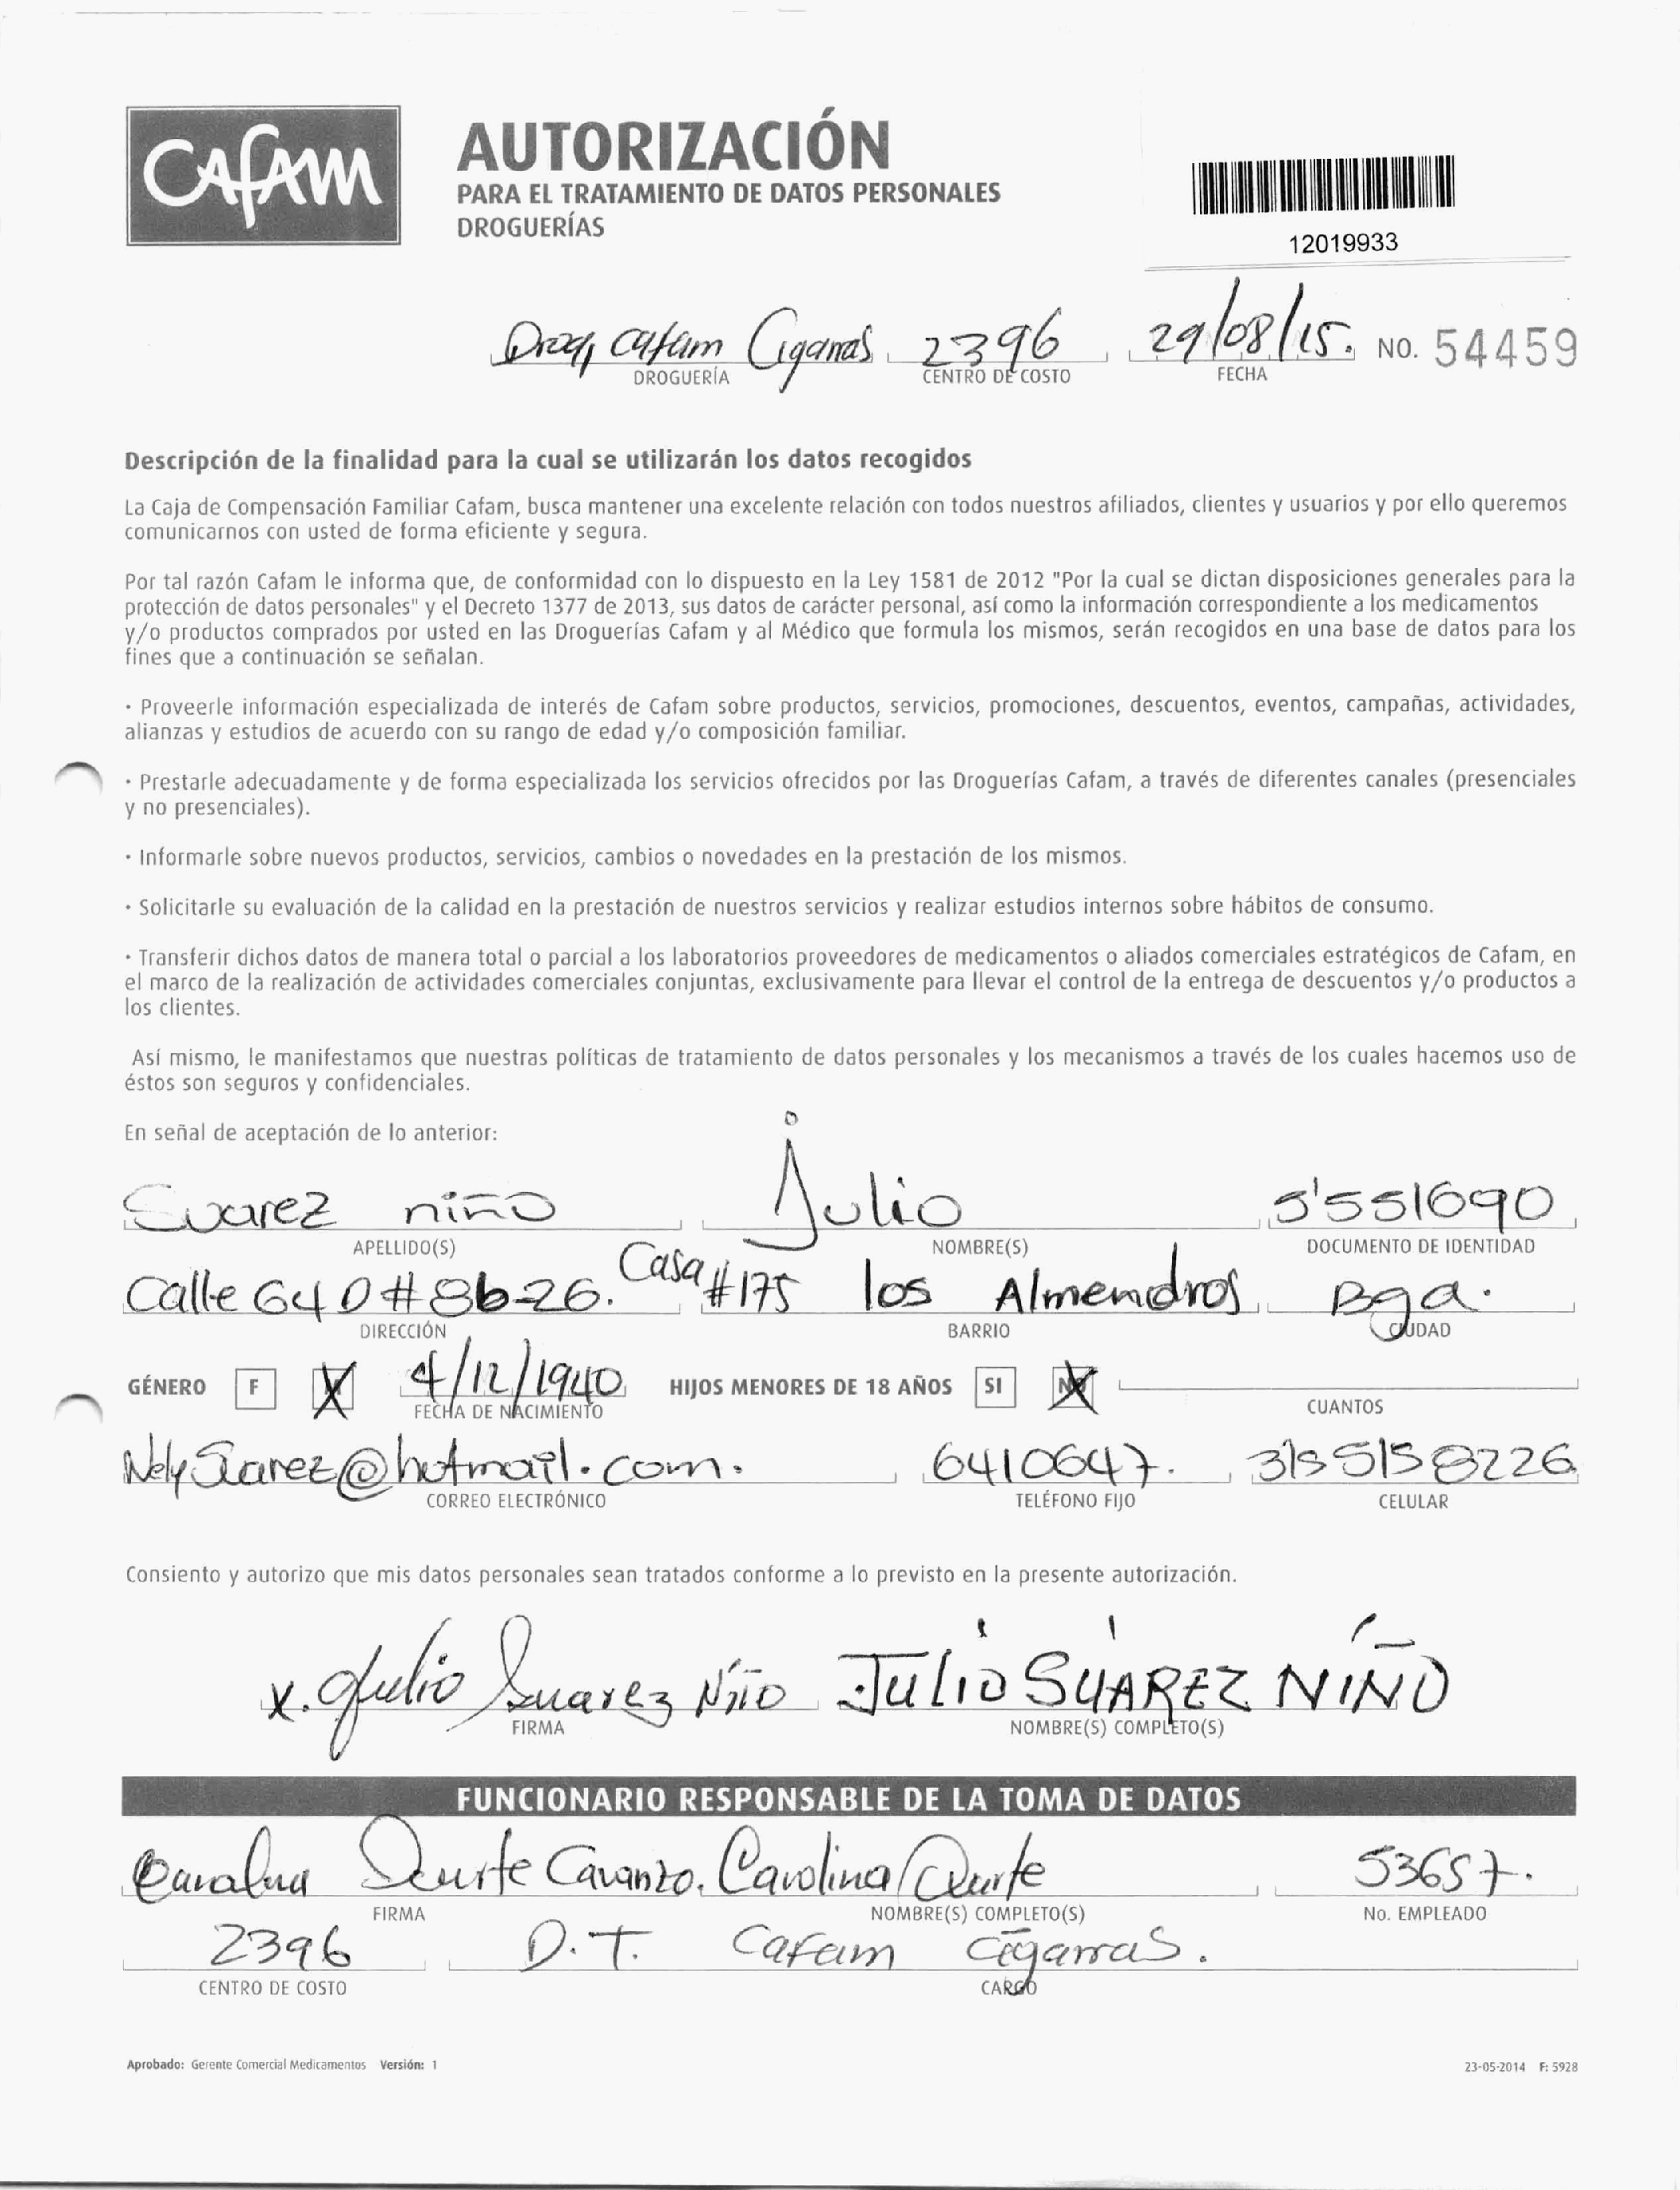 CAFAM
AUTORIZACIÓN
PARA EL TRATAMIENTO DE DATOS PERSONALES
DROGUERÍAS
12019933
Drog Cafam Cigarras 2396 29/08/15. NO. 54459
DROGUERÍA CENTRO DE COSTO FECHA
Descripción de la finalidad para la cual se utilizarán los datos recogidos
La Caja de Compensación Familiar Cafam, busca mantener una excelente relación con todos nuestros afiliados, clientes y usuarios y por ello queremos
comunicarnos con usted de forma eficiente y segura.
Por tal razón Cafam le informa que, de conformidad con lo dispuesto en la Ley 1581 de 2012 "Por la cual se dictan disposiciones generales para la
protección de datos personales" y el Decreto 1377 de 2013, sus datos de carácter personal, así como la información correspondiente a los medicamentos
y/o productos comprados por usted en las Droguerías Cafam y al Médico que formula los mismos, serán recogidos en una base de datos para los
fines que a continuación se señalan.
· Proveerle información especializada de interés de Cafam sobre productos, servicios, promociones, descuentos, eventos, campañas, actividades,
alianzas y estudios de acuerdo con su rango de edad y/o composición familiar.
· Prestarle adecuadamente y de forma especializada los servicios ofrecidos por las Droguerías Cafam, a través de diferentes canales (presenciales
y no presenciales).
· Informarle sobre nuevos productos, servicios, cambios o novedades en la prestación de los mismos.
· Solicitarle su evaluación de la calidad en la prestación de nuestros servicios y realizar estudios internos sobre hábitos de consumo.
· Transferir dichos datos de manera total o parcial a los laboratorios proveedores de medicamentos o aliados comerciales estratégicos de Cafam, en
el marco de la realización de actividades comerciales conjuntas, exclusivamente para llevar el control de la entrega de descuentos y/o productos a
los clientes.
Así mismo, le manifestamos que nuestras políticas de tratamiento de datos personales y los mecanismos a través de los cuales hacemos uso de
éstos son seguros y confidenciales.
En señal de aceptación de lo anterior:
Suarez niño Julio 5'551690
APELLIDO(S) NOMBRE(S) DOCUMENTO DE IDENTIDAD
Calle 64 D # 8b-26. Casa #175 los Almendros Bga.
DIRECCIÓN BARRIO CIUDAD
GÉNERO F X 4/12/1940 HIJOS MENORES DE 18 AÑOS SI NO X
FECHA DE NACIMIENTO CUANTOS
NelySuarez@hotmail.com. 6410647. 3155158226
CORREO ELECTRÓNICO TELÉFONO FIJO CELULAR
Consiento y autorizo que mis datos personales sean tratados conforme a lo previsto en la presente autorización.
X. Julio Suarez Niño JULIO SUAREZ NIÑO
FIRMA NOMBRE(S) COMPLETO(S)
FUNCIONARIO RESPONSABLE DE LA TOMA DE DATOS
Carolina Duarte Cavanzo. Carolina Duarte 53657.
FIRMA NOMBRE(S) COMPLETO(S) No. EMPLEADO
2396 D.T. Cafam Cigarras.
CENTRO DE COSTO CARGO
Aprobado: Gerente Comercial Medicamentos Versión: 1 23-05-2014 F: 5928